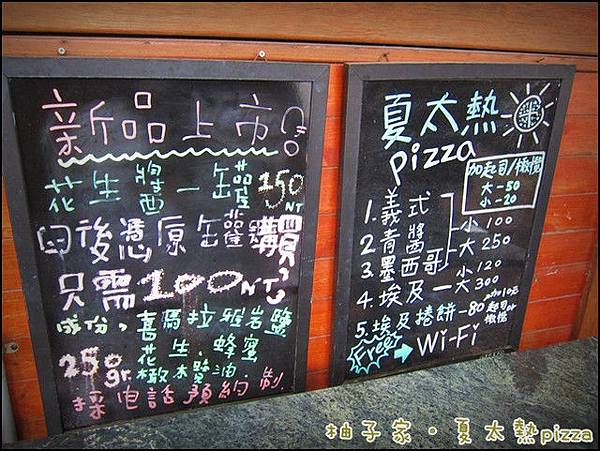 新品上市!
花生醬一罐150NT
日後憑原空罐購買
只需100NT
成份：喜馬拉雅岩鹽
花生、蜂蜜
250gr. 橄欖油.
採電話預約制.
夏太熱
pizza
加起司/橄欖
大-50
小-20
1.義式
2.青醬
3.墨西哥
小100
大250
4.埃及
小120
大300
5.埃及捲餅-80
加10元
起司or
橄欖
Free
Wi-Fi
柚子家·夏太熱pizza